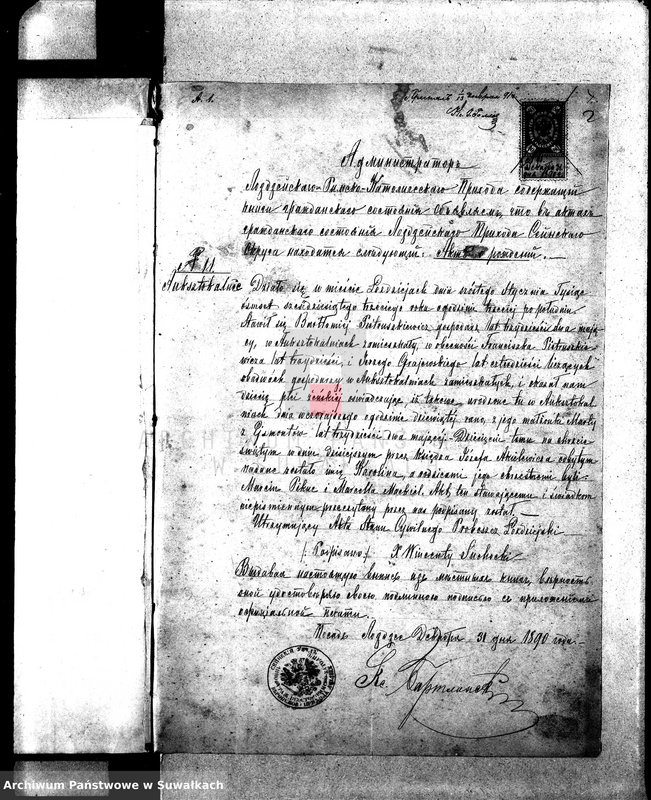 А. 1.
2
Администраторъ
Лоздзейскаго Римско-Католическаго Прихода содержащій
книги гражданскаго состоянія объявляетъ, что въ актахъ
гражданскаго состоянія Лоздзейскаго Прихода Сейнскаго
Округа находится слѣдующій: Актъ о рожденіи.
Auksztokalnie
Działo się w mieście Łozdziejach dnia szóstego Stycznia Tysiąc
ośmset sześćdziesiątego trzeciego roku o godzinie trzeciej po południu
Stawił się Bartłomiej Pietruszkiewicz gospodarz lat trzydzieści dwa mają-
cy, w Auksztokalniach zamieszkały, w obecności Franciszka Pietruszkie-
wicza lat trzydzieści, i Jerzego Grajewskiego lat czterdzieści liczących
obudwóch gospodarzy w Auksztokalniach zamieszkałych, i okazał nam
dziecię płci żeńskiej oświadczając iż takowe, urodzone tu w Auksztokal-
niach dnia wczorajszego o godzinie dziewiątej rano, z jego małżonki Marty
z Ejsmontów lat trzydzieści dwa mającej. Dziecięciu temu na chrzcie
świętym w dniu dzisiejszym przez Księdza Józefa odbytym
nadane zostało imię Karolina, a rodzicami jego chrzestnemi byli
Marcin i Marcella. Akt ten stawającemu i świadkom
niepiśmiennym przeczytany przez nas podpisany został.
Utrzymujący Akta Stanu Cywilnego Proboszcz Łozdziejski
/: Podpisano :/ X Wincenty Suchocki
Выдавая настоящую выпись изъ мѣстныхъ книгъ, вѣрность
оной удостовѣряю своею подлинною подписью съ приложеніемъ
оффиціальной печати.
Посадъ Лоздзее Декабря 31 дня 1890 года.
Archiwum Państwowe w Suwałkach